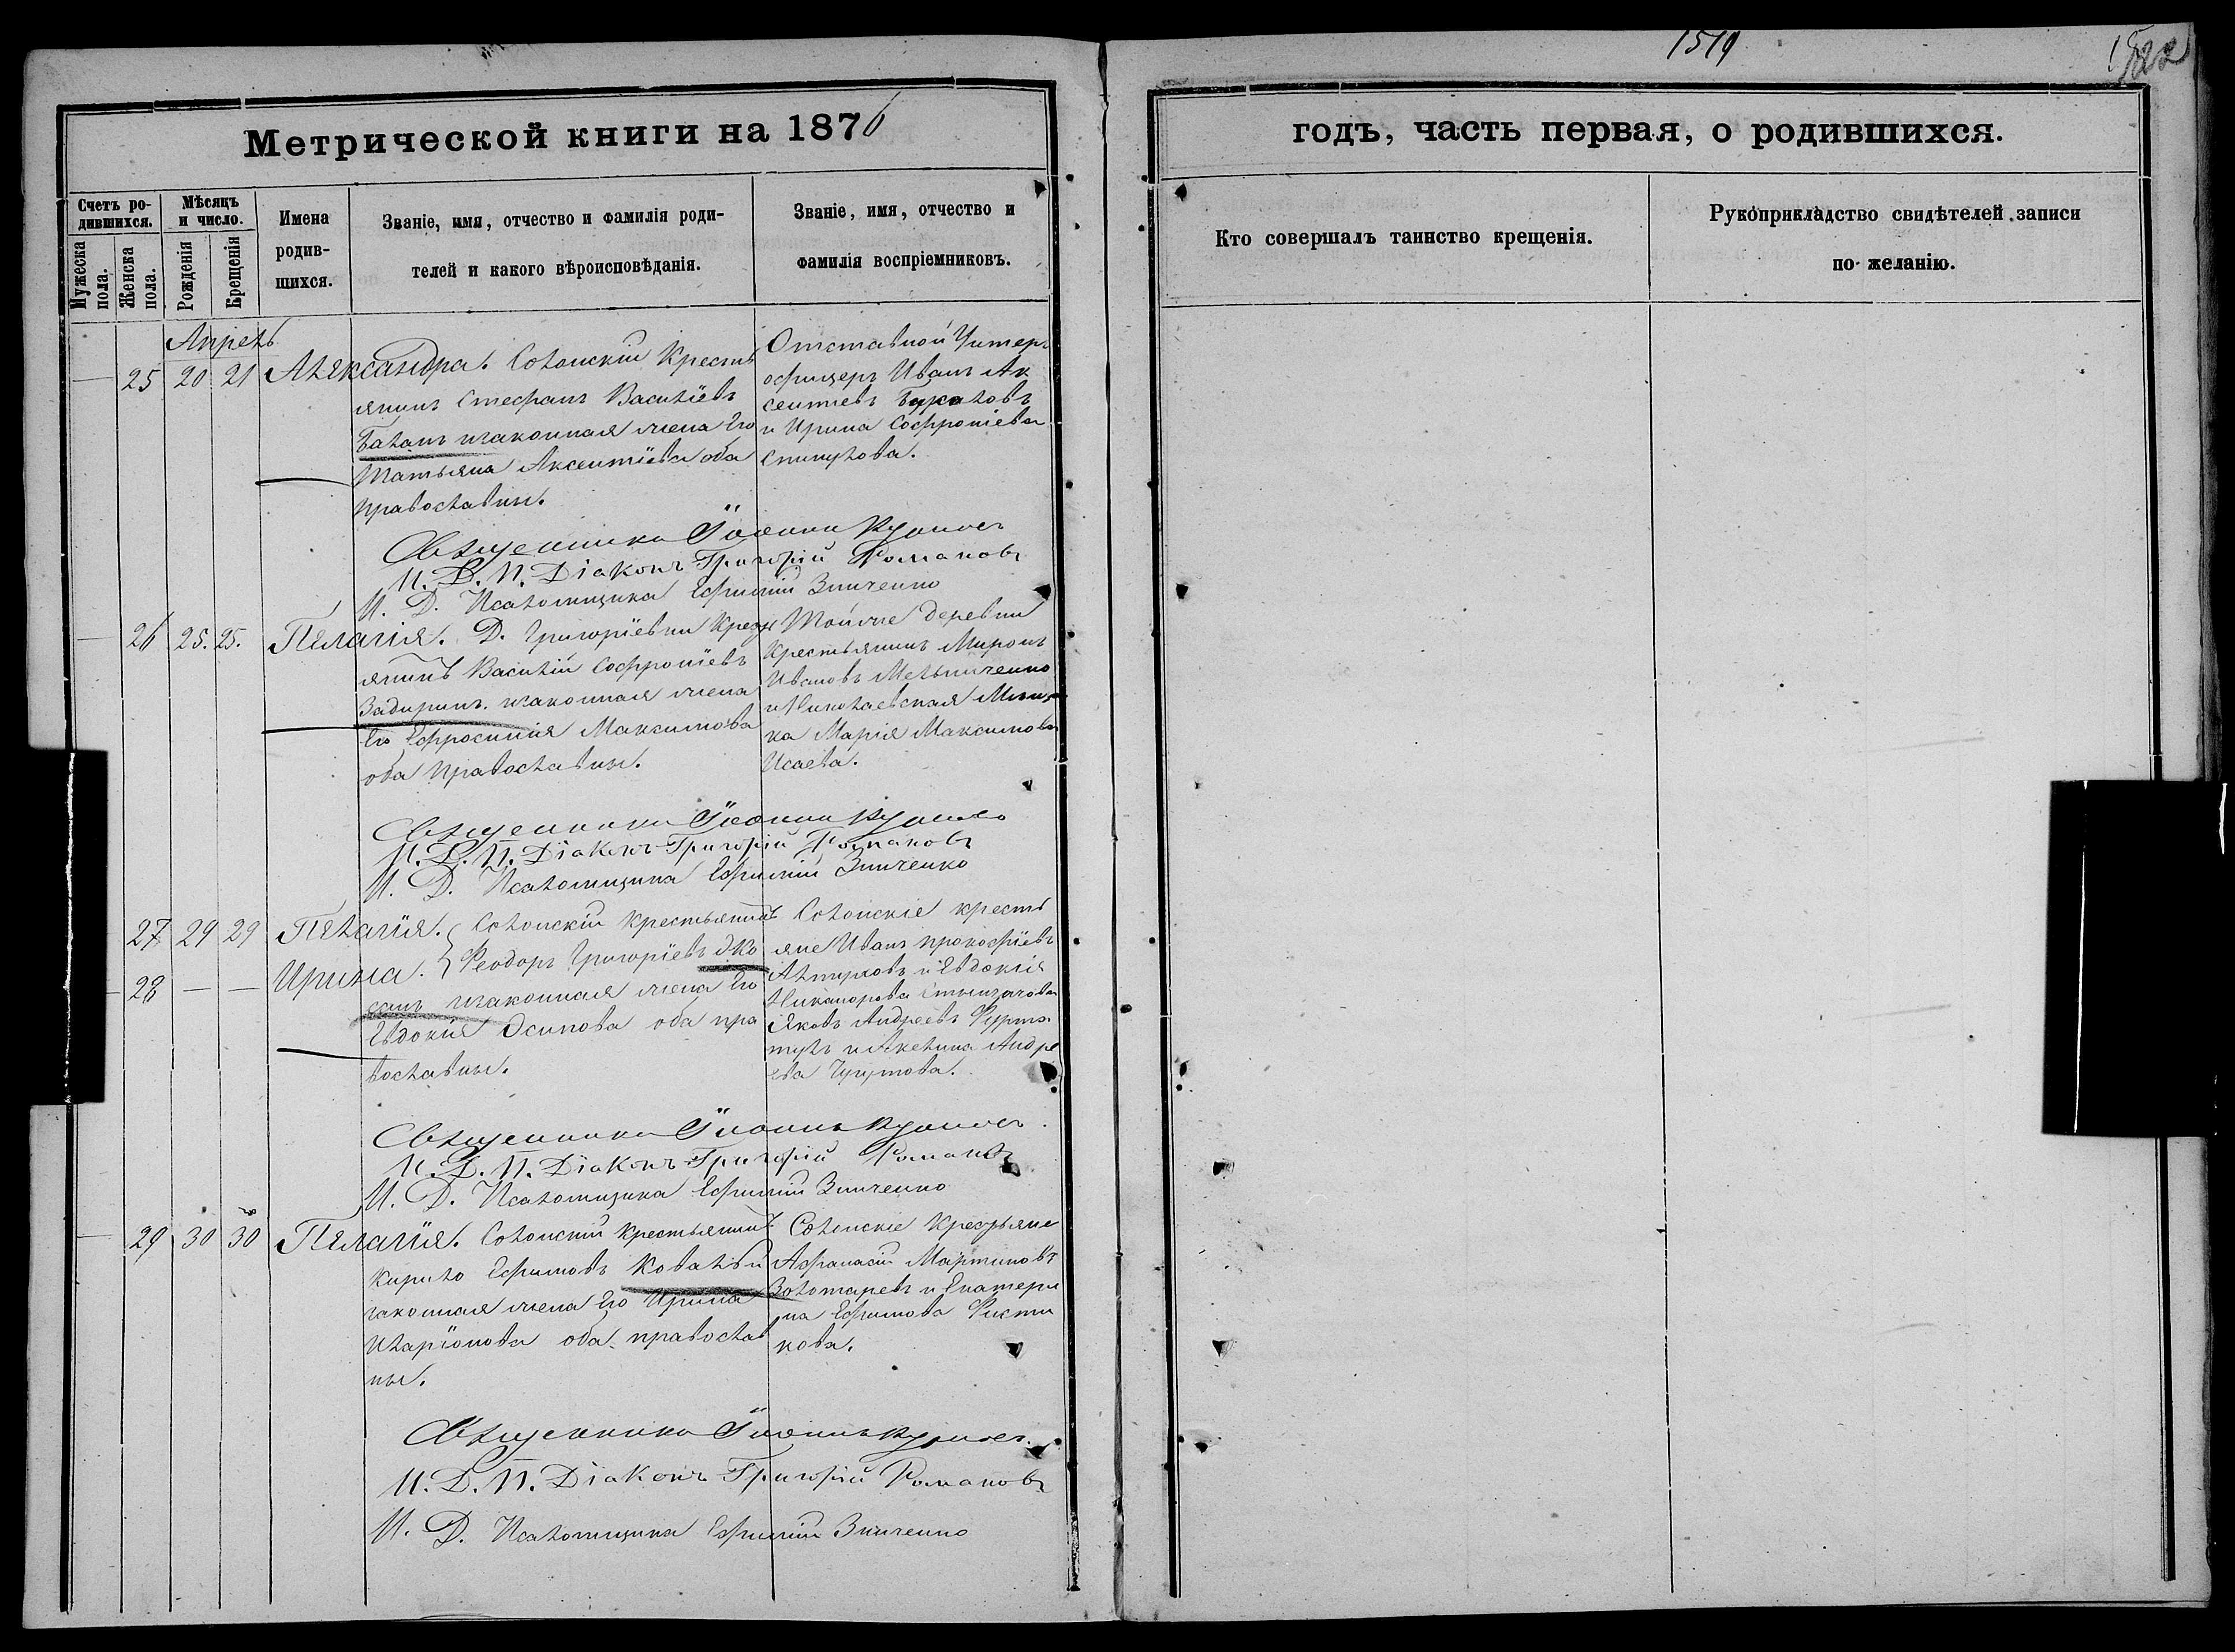 1519
1522
Метрической книги на 1876
годъ, часть первая, о родившихся.
Счетъ ро-
дившихся.
Мужеска
пола.
Женска
пола.
Мѣсяцъ
и число.
Рожденія
Крещенія
Имена
родив-
шихся.
Званіе, имя, отчество и фамилія роди-
телей и какого вѣроисповѣданія.
Званіе, имя, отчество и
фамилія воспріемниковъ.
Кто совершалъ таинство крещенія.
Рукоприкладство свидѣтелей записи
по желанію.
Апрель
25 20 21 Александра.
Солонскій Кресть
янинъ Стефанъ Василіевъ
Баланъ изаконная жена Его
Татьяна Аксентіева оба
православны.
Отставной Унтеръ
офицеръ Иванъ Ак
сентіевъ
и Ирина Софроніева
Спинулова.
Священникъ Іоаннъ
И. Д. П. Діаконъ Григорій Романовъ
И. Д. Псаломщика Ефимій Зинченко
26 25. 25. Пелагія.
Д. Григоріевки Крест
янинъ Василій Софроніевъ
Задиринъ изаконная жена
Его Ефросинія Максимова
оба православны.
Тойже деревни
Крестьянинъ Миронъ
Ивановъ Мельниченко
и Николаевская Мѣщан
ка Марія Максимова
Исаева.
Священникъ Іоаннъ
И. Д. П. Діаконъ Григорій Романовъ
И. Д. Псаломщика Ефимій Зинченко
27 29 29 Пелагія.
28 — — Ирина.
Солонскій Крестьянинъ
Феодоръ Григоріевъ
изаконная жена Его
Евдокія Осипова оба пра
вославны.
Солонскіе кресть
яне Иванъ Прокофіевъ
и Евдокія
Никанорова
Яковъ Андреевъ
и Акелина Андре
ева
Священникъ Іоаннъ
И. Д. П. Діаконъ Григорій Романовъ
И. Д. Псаломщика Ефимій Зинченко
29 30 30 Пелагія.
Солонскій Крестьянинъ
Кирило Ефимовъ Коваль и
законная жена Его Ирина
Иларіонова оба православ
ны.
Солонскіе Крестьяне
Афанасій Мартиновъ
Золотаревъ и Екатери
на Ефимова Фисти
кова.
Священникъ Іоаннъ
И. Д. П. Діаконъ Григорій Романовъ
И. Д. Псаломщика Ефимій Зинченко